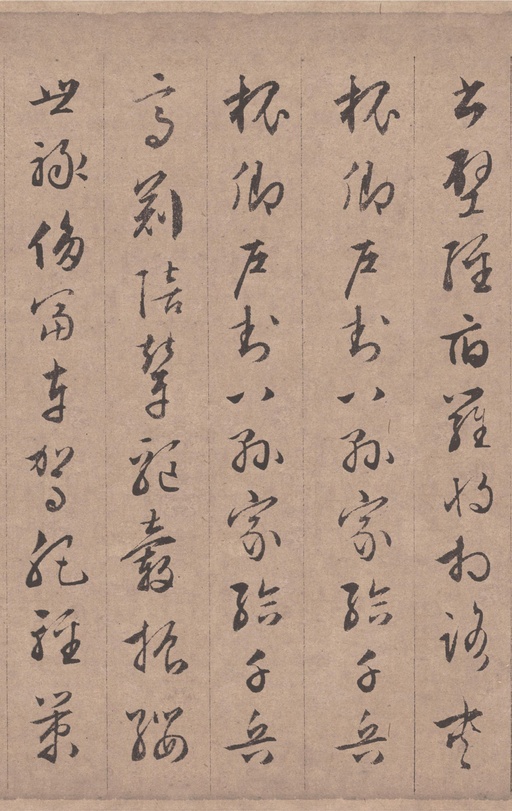 書壁經府羅將相路夾
槐卿戶封八縣家給千兵
槐卿戶封八縣家給千兵
高冠陪輦驅轂振纓
世祿侈富車駕肥輕策